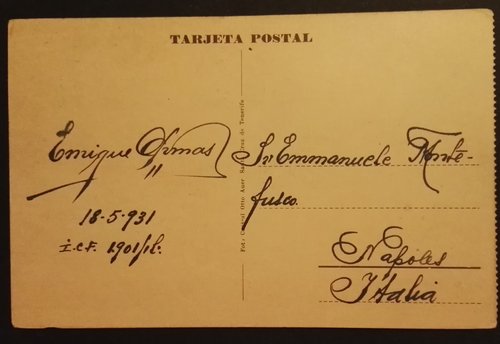 TARJETA POSTAL
Enrique Armas
18-5-931
I.C.F. 1901/16.
Fot. Central Otto Auer Santa Cruz de Tenerife
Sr Emmanuele Monte-
fusco.
Napoles
Italia